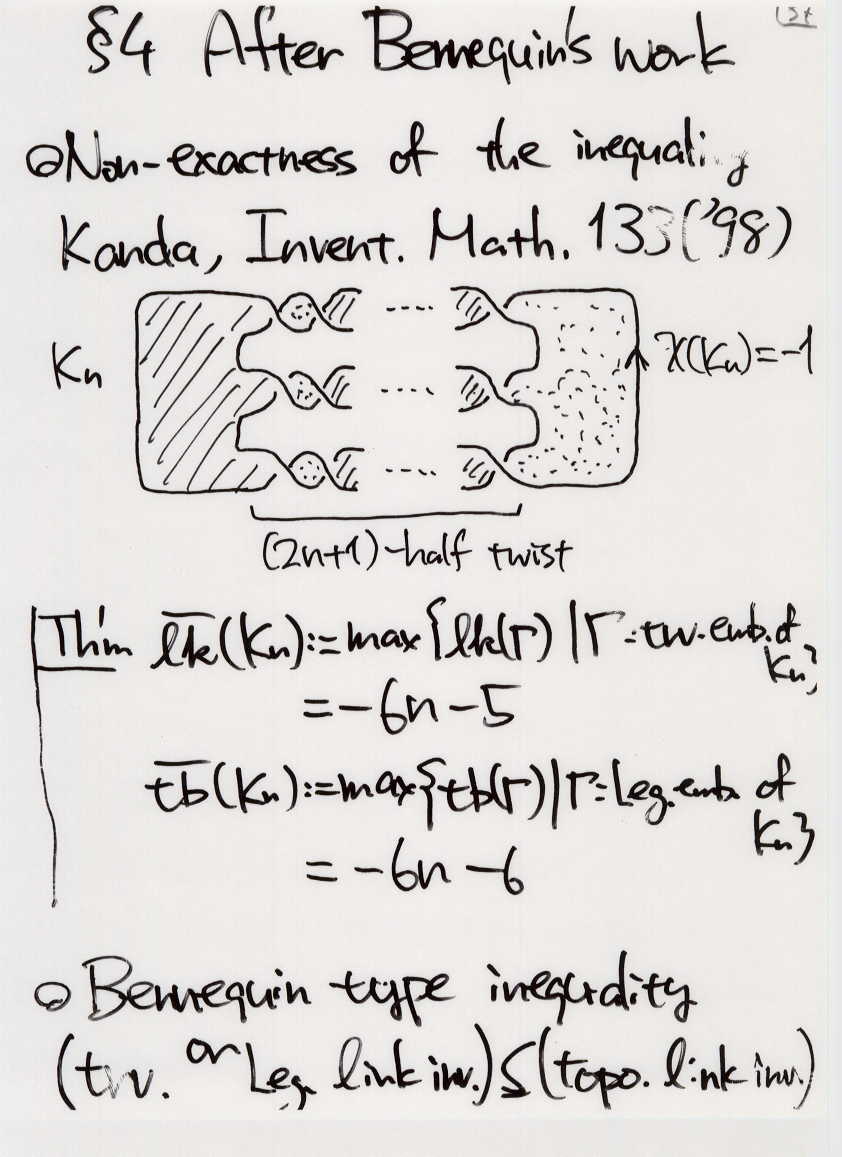 §4 After Bennequin's work
⊙Non-exactness of the inequali
Kanda, Invent. Math. 133('98)
Kn
χ(Kn)=-1
(2n+1)-half twist
Th'm lk(Kn):=max{lk(Γ)|Γ:trv.emb.of Kn}
=-6n-5
tb(Kn):=max{tb(Γ)|Γ:Leg.emb. of Kn}
=-6n-6
○ Bennequin type inequality
(trv. or Leg. link inv.)≤(topo. link inv.)